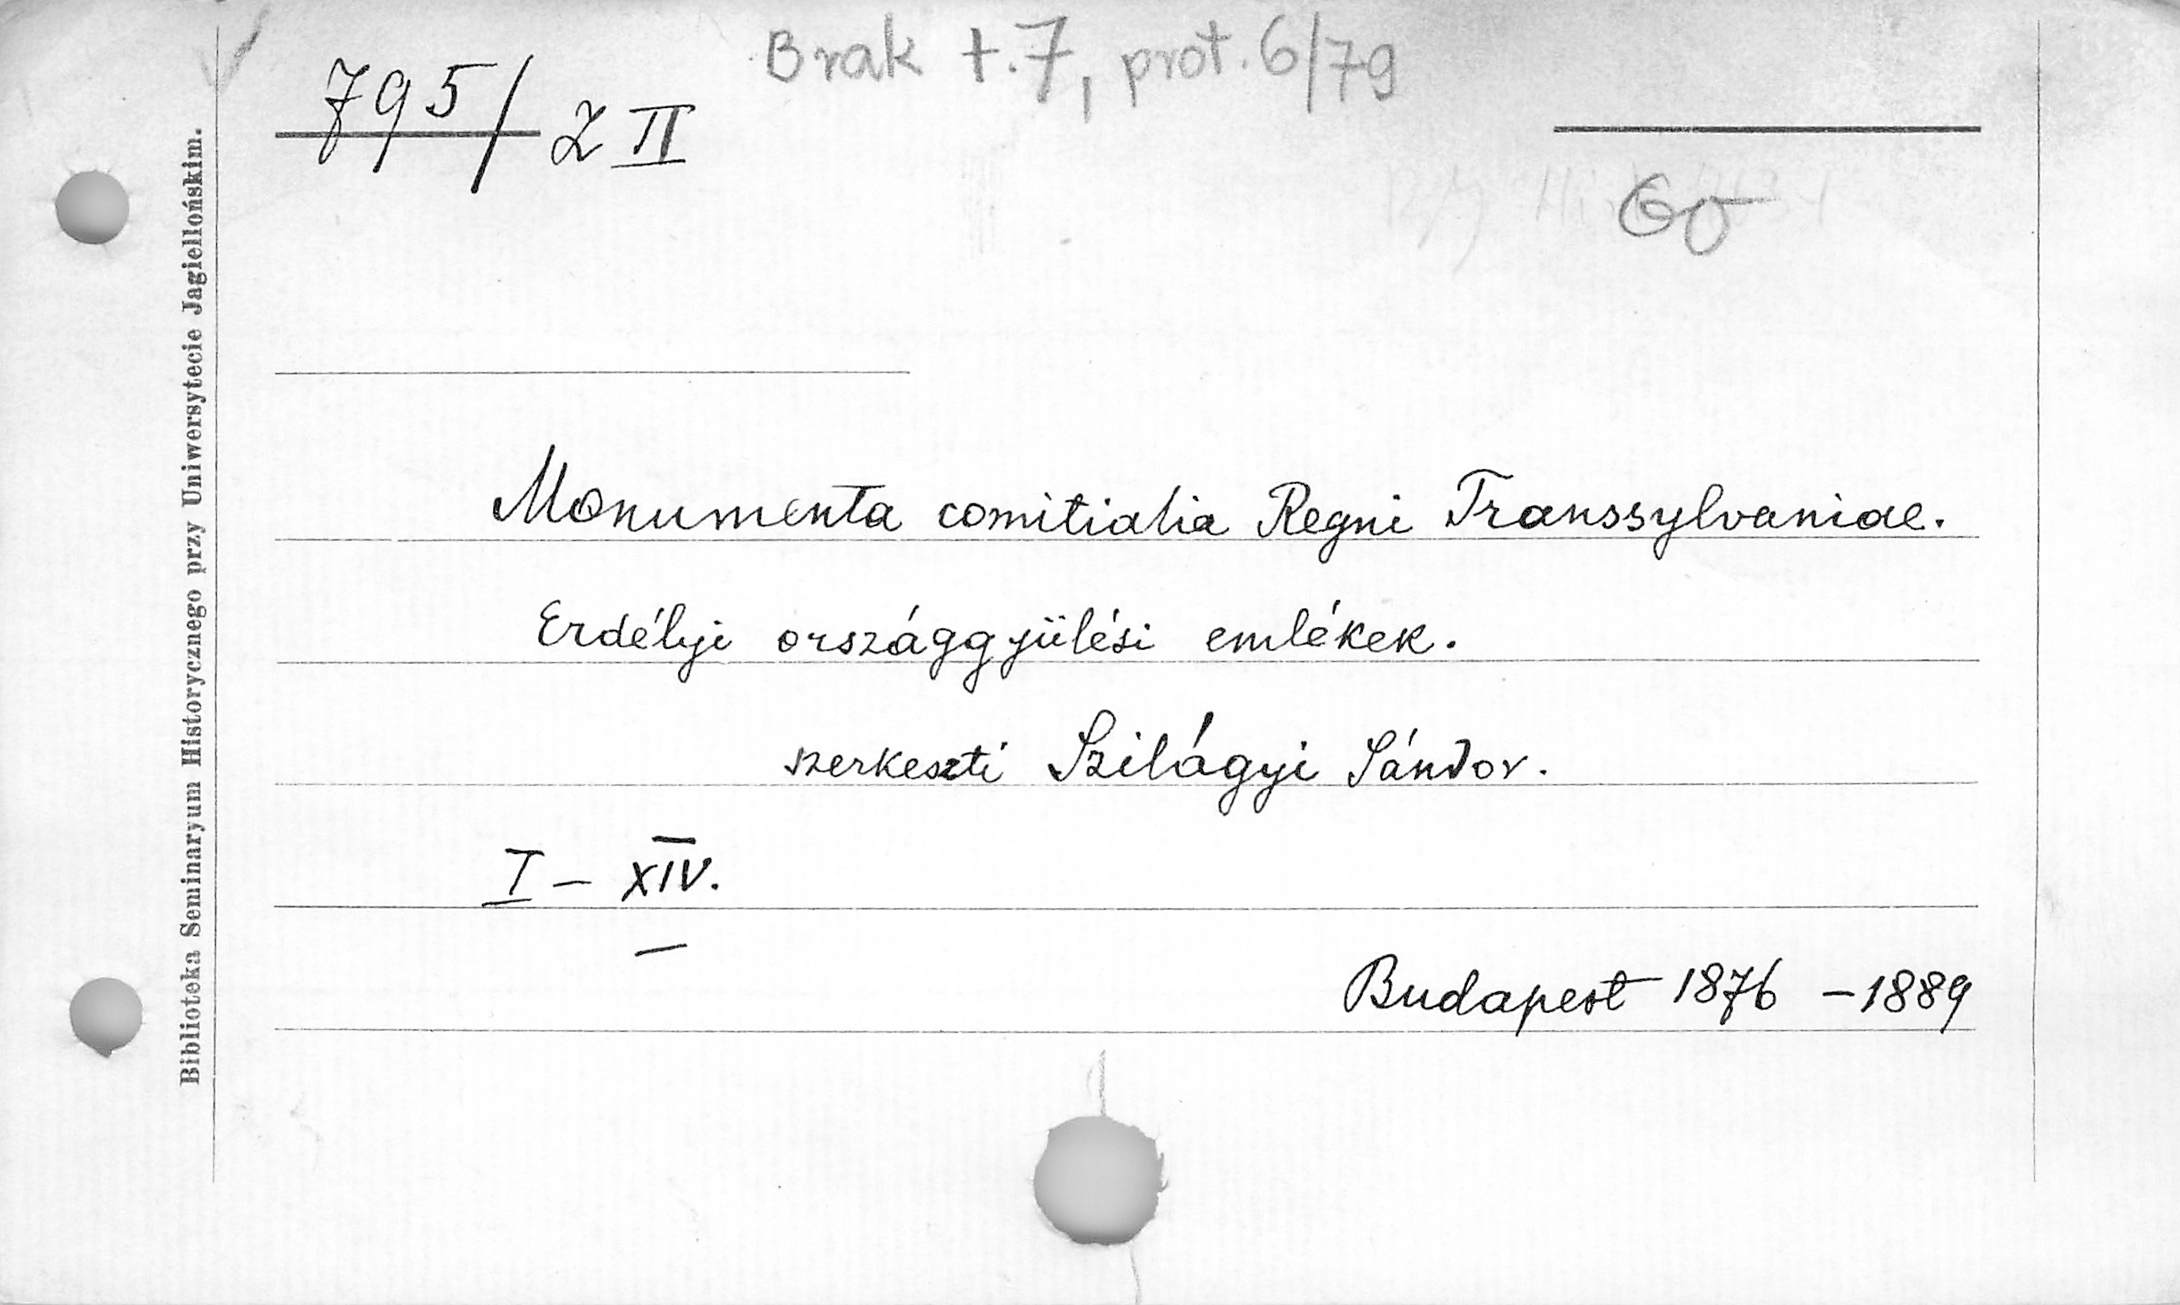 Brak t. 7, prot. 6/79
795/ Z II
Monumenta comitialia Regni Transsylvaniae.
Erdélyi országgyülési emlékek.
szerkeszti Szilágyi Sándor.
I – XIV.
Budapest 1876 – 1889
Biblioteka Seminaryum Historycznego przy Uniwersytecie Jagiellońskim.